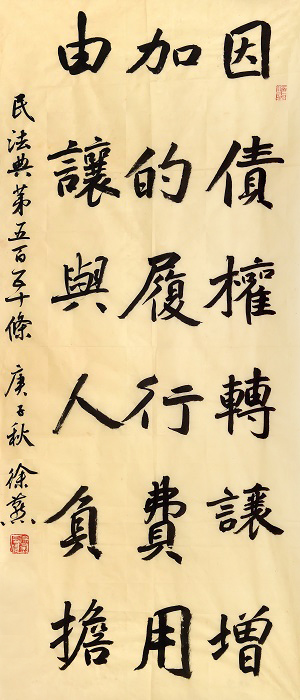 因債權轉讓增
加的履行費用
由讓與人負擔
民法典第五百五十條 庚子秋 徐